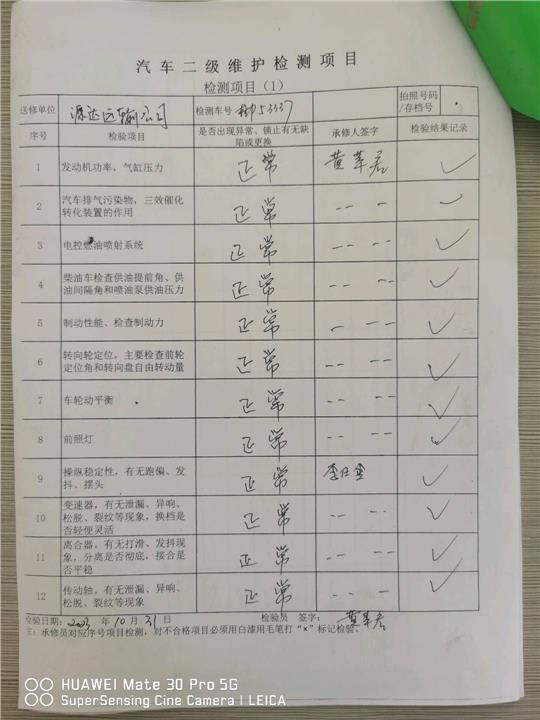 汽车二级维护检测项目
检测项目（1）
送修单位 源达运输公司 检测车号 53337 拍照号码/存档号
序号 检验项目 是否出现异常、锁止有无缺陷或更换 承修人签字 检验结果记录
1 发动机功率，气缸压力 正常 ✓
2 汽车排气污染物，三效催化转化装置的作用 正常 -- -- ✓
3 电控燃油喷射系统 正常 -- -- ✓
4 柴油车检查供油提前角、供油间隔角和喷油泵供油压力 正常 -- -- ✓
5 制动性能、检查制动力 正常 -- -- ✓
6 转向轮定位，主要检查前轮定位角和转向盘自由转动量 正常 -- -- ✓
7 车轮动平衡 正常 -- -- ✓
8 前照灯 正常 -- -- ✓
9 操纵稳定性，有无跑偏、发抖、摆头 正常 ✓
10 变速器，有无泄漏、异响、松脱、裂纹等现象，换档是否轻便灵活 正常 -- -- ✓
11 离合器，有无打滑、发抖现象，分离是否彻底，接合是否平稳 正常 -- -- ✓
12 传动轴，有无泄漏、异响、松脱、裂纹等现象 正常 -- -- ✓
检验日期：2023 年 10 月 31 日 检验员 签字：
注：承修员对应序号项目检测，对不合格项目必须用白漆用毛笔打“×”标记检验。
HUAWEI Mate 30 Pro 5G
SuperSensing Cine Camera | LEICA